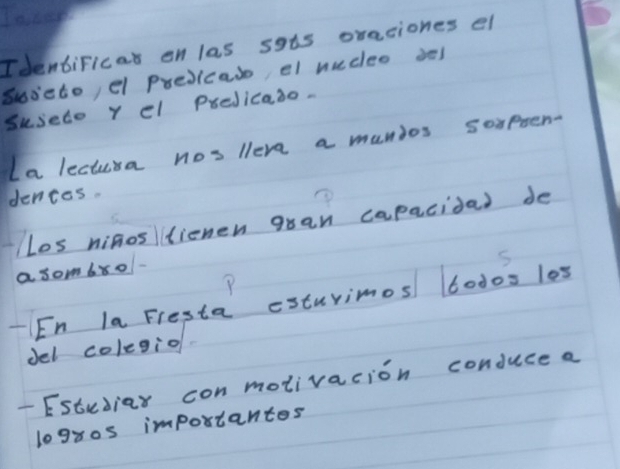 Identificar en las sgts oraciones el
sujeto, el predicado, el nucleo del
sujeto y el predicado.
La lectura nos lleva a mundos sorpren-
dentes.
S P
- Los niños tienen gran capacidad de
asombro.
P S
- En la Fiesta estuvimos todos los
del colegio.
- Estudiar con motivación conduce a
logros importantes